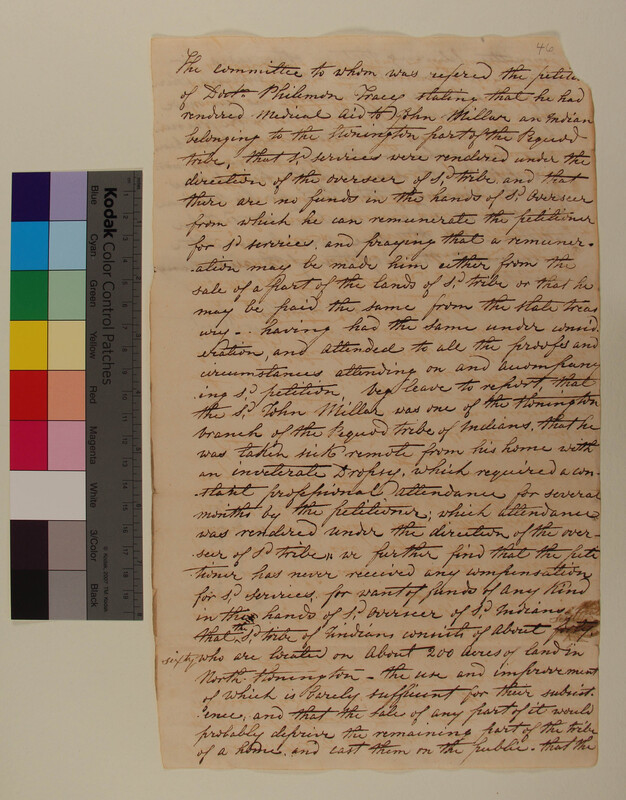 46
The committee to whom was refered the petition
of Doctr. Philemon Tracy stating that he had
rendered Medical aid to John Millar an Indian
belonging to the Stonington part of the Pequod
tribe, that sd. services were rendered under the
direction of the overseer of sd. tribe and that
there are no funds in the hands of sd. Overseer
from which he can remunerate the petitioner
for sd. services, and praying that a remuner-
-ation may be made him either from the
sale of a part of the lands of sd. tribe or that he
may be paid the same from the state treas
ury -. having had the same under consid
-eration, and attended to all the proofs and
circumstances attending on and accompany
-ing sd. petition, beg leave to report, that
the sd. John Millar was one of the Stonington
branch of the Pequod tribe of Indians, that he
was taken sick remote from his home with
an inveterate Dropsy, which required a con-
-stant professional attendance for several
months by the petitioner; which attendance
was rendered under the direction of the over-
-seer of sd. tribe,, we further find that the peti
-tioner has never received any compensation
for sd. services, for want of funds of any kind
in the hands of sd. Overseer of sd. Indians
that the sd. tribe of Indians consists of about
sixty who are located on About 200 Acres of land in
North-Stonington - the use and improvement
of which is barely sufficient for their subsist
-ence, and that the sale of any part of it would
probably deprive the remaining part of the tribe
of a home, and cast them on the public - that the
Kodak Color Control Patches
Blue
Cyan
Green
Yellow
Red
Magenta
White
3/Color
Black